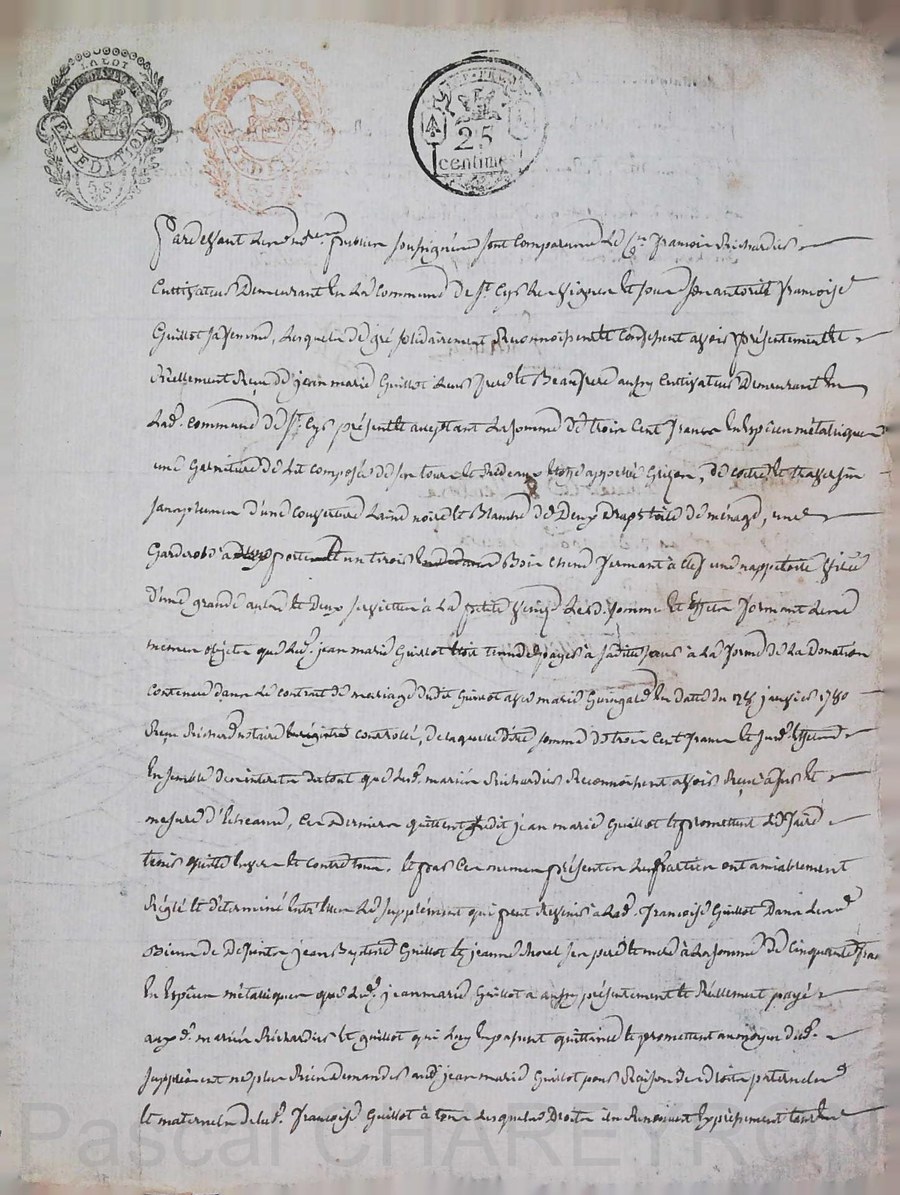 LA LOI
EXPEDITION
5 S
LA LOI
EXPEDITION
5 S
REP. FRA.
25
centimes
Pardevant le not.re public soussigné sont comparus le C.en François Richardier
Cultivateur demeurant en la commune de St. Cyr les Vignes et sous son autorité Françoise
Guillot sa femme, lesquels de gré solidairement Reconnoissent et confessent avoir présentement et
Réellement Reçu de jean marie Guillot leur frere et Beaufrere aussy Cultivateur demeurant en
lad. commune de St. Cyr présent et acceptant la somme de trois cent francs en Espèces métalliques
une Garniture de lit composée de son tour et Rideaux appellée Grizon, de coitre et traversin
sans plumes d'une couverture laine noire et Blanche de deux draps toile de ménage, une
Garderobe à porte et un tiroir Bois chene fermant à clef une nappe toile
d'une grande aulne et deux serviettes à la petite Venize lesd. somme et Effets formant les
mêmes objets que led. jean marie Guillot tenu de payer à sadite sœur à la forme de la Donation
contenue dans le contrat de mariage dudit Guillot avec marie en date du janvier 1780
Reçu Richard notaire controllé, de laquelle dite somme de trois cent francs et susd. Effets
Ensemble des interets du tout que lesd. mariés Richardier Reconnoissent avoir Reçu à fur et
mesure d'Echeance, ces derniers quittent ledit jean marie Guillot et promettent le faire
tenir quitte Envers et contre tous. Et par ces memes présentes les parties ont amiablement
Réglé et déterminé Entr'elles le supplément qui peut Revenir à lad. Françoise Guillot dans les
de defunts jean Baptiste Guillot et jeanne morel ses pere et mere à la somme de Cinquante fra
En Espèces métalliques que led. jean marie Guillot a aussy présentement et Réellement payé
auxd. mariés Richardier et guillot qui luy En passent quittance et promettent au moyen dud.
supplément ne plus Rien demander aud. jean marie Guillot pour Raison des droits paternels
et maternels de lad. Françoise Guillot à tous lesquels Droits ils Renoncent Expressement
Pascal CHAREYRON